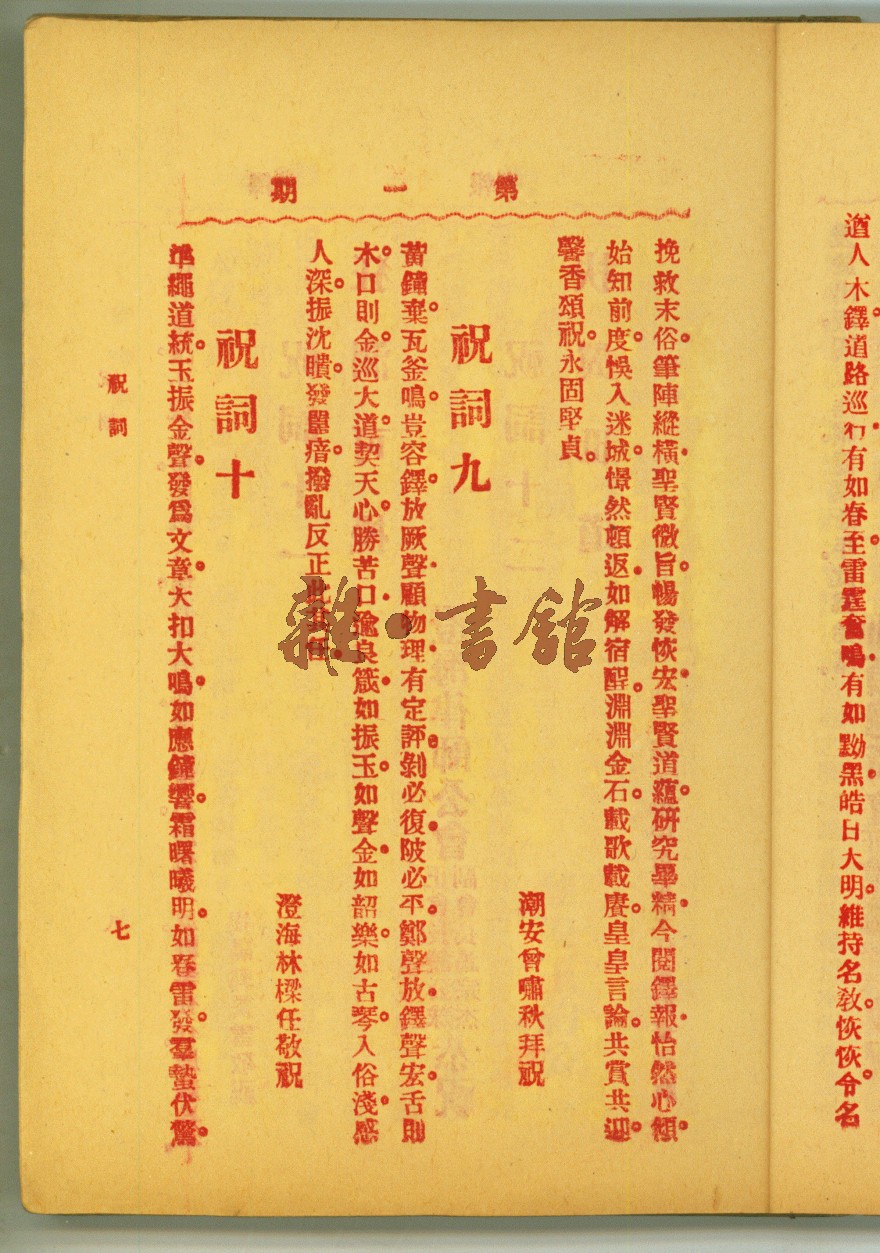 遒人木鐸道路巡行有如春至雷霆奮鳴有如黝黑皓日大明維持名敎恢恢令名
第一期
挽救末俗筆陣縱橫聖賢微旨暢發恢宏聖賢道蘊研究畢精今閱鐸報怡然心傾
始知前度悞入迷城憬然頓返如解宿酲淵淵金石載歌載賡皇皇言論共賞共迎
馨香頌祝永固堅貞
潮安曾嘯秋拜祝
祝詞九
黃鐘棄瓦釜鳴豈容鐸放厥聲顧物理有定評剝必復陂必平鄭聲放鐸聲宏舌則
木口則金巡大道契天心勝苦口逾良箴如振玉如聲金如韶樂如古琴入俗淺感
人深振沈瞶發瘖撥亂反正此其任
澄海林樑任敬祝
祝詞十
準繩道統玉振金聲發爲文章大扣大鳴如應鐘響霜曙曦明如春雷發羣蟄伏驚
祝詞
七
雜·書館